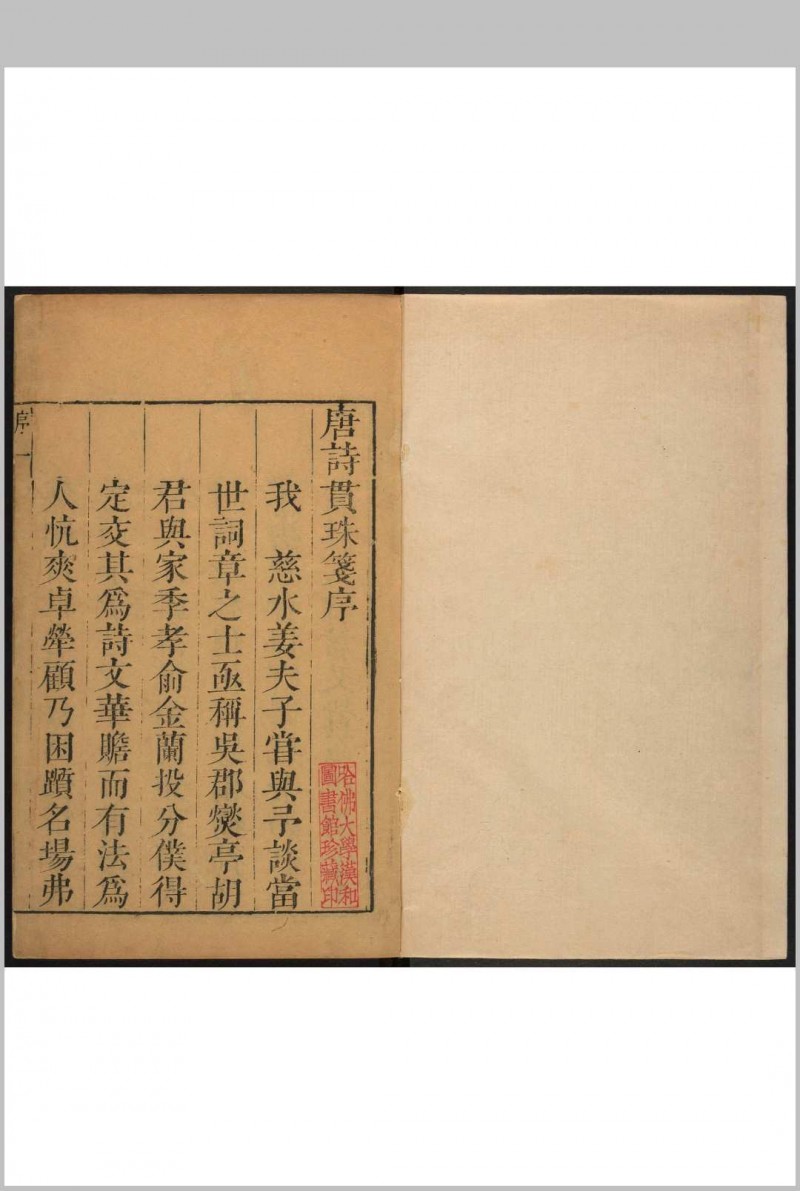 唐詩貫珠箋序
哈佛大學漢和
圖書館珍藏印
我　慈水姜夫子甞與予談當
世詞章之士亟稱吳郡燮亭胡
君與家季孝俞金蘭投分僕得
定交其為詩文華贍而有法為
人忼爽卓犖顧乃困躓名場弗
序 一